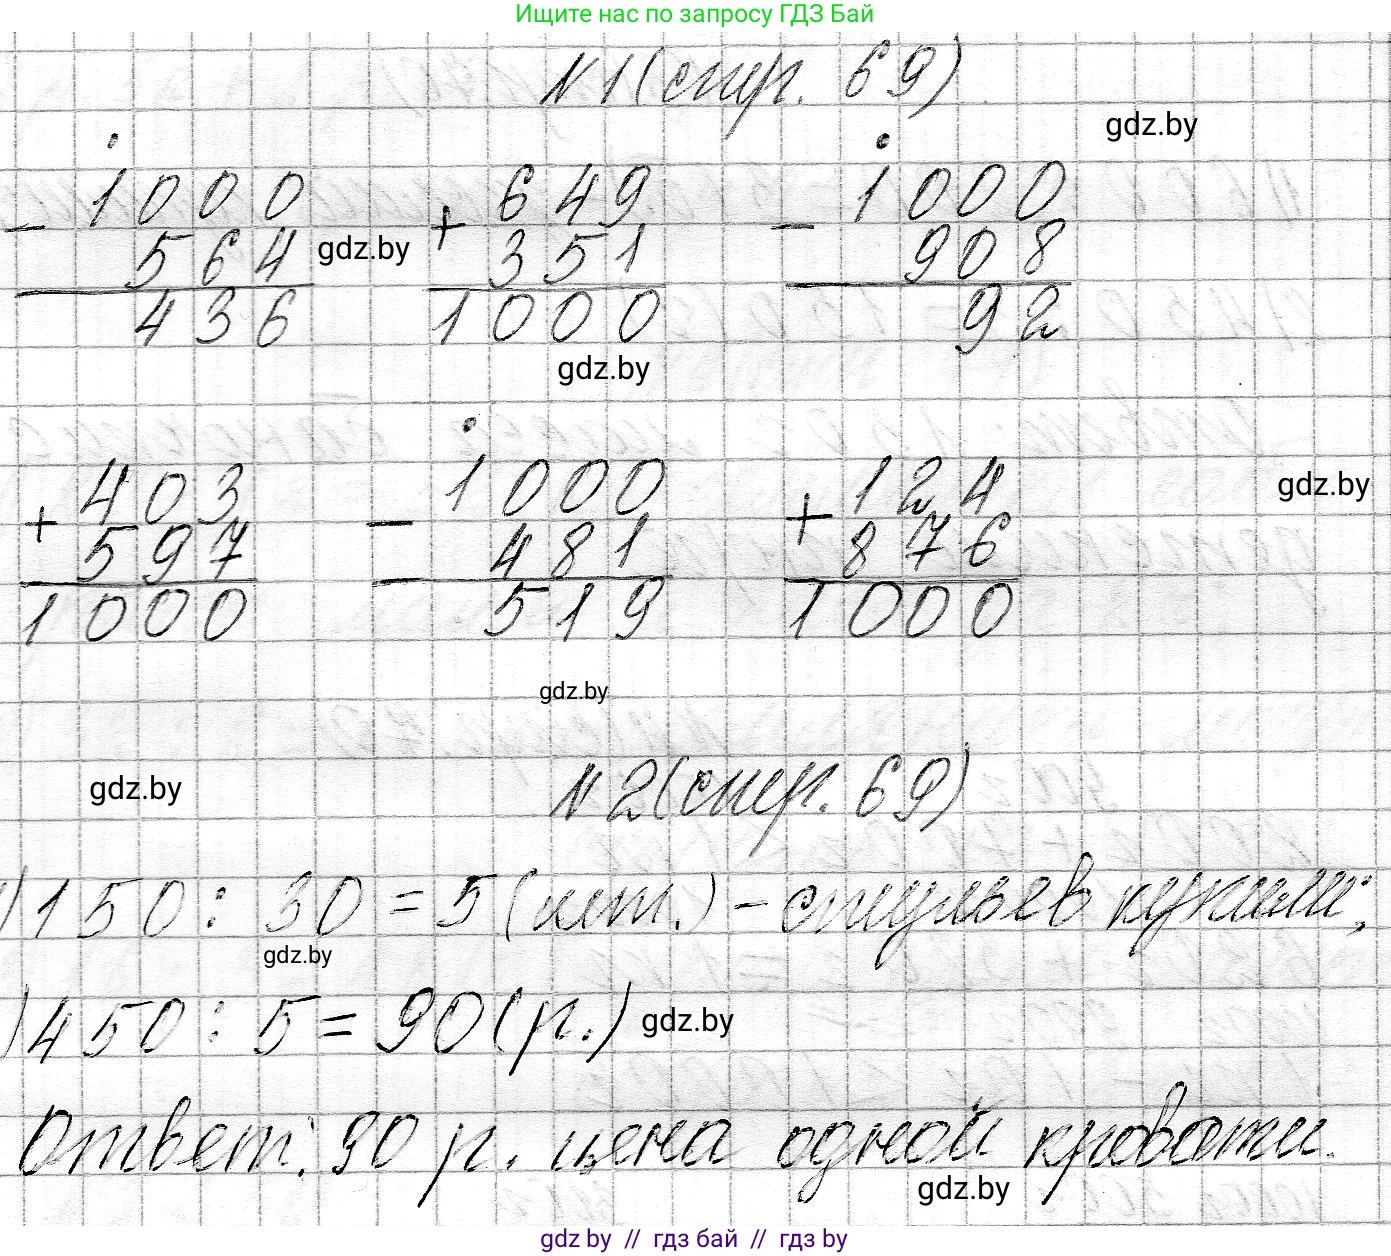 Ищите нас по запросу ГДЗ Бай
№1(стр. 69)
gdz.by
1000 + 649 - 1000
- 564 gdz.by 351 908
436 1000 92
gdz.by
+ 403 - 1000 + 124
597 481 876
1000 519 1000
gdz.by
gdz.by
gdz.by
№2(стр. 69)
)150 : 30 = 5 (шт.) - стульев купили;
gdz.by
)450 : 5 = 90 (р.) gdz.by
Ответ: 90 р. цена одной кровати.
gdz.by
gdz by // гдз бай // гдз by